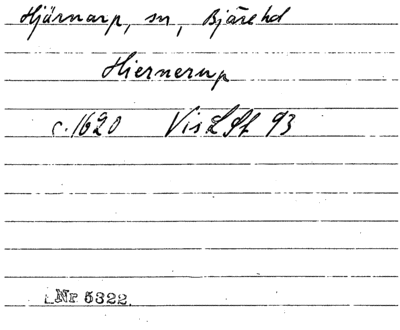 Hjärnarp, sn, Bjäre hd
Hiernerup
c. 1620 Vis LSt 93
Nr 5322.